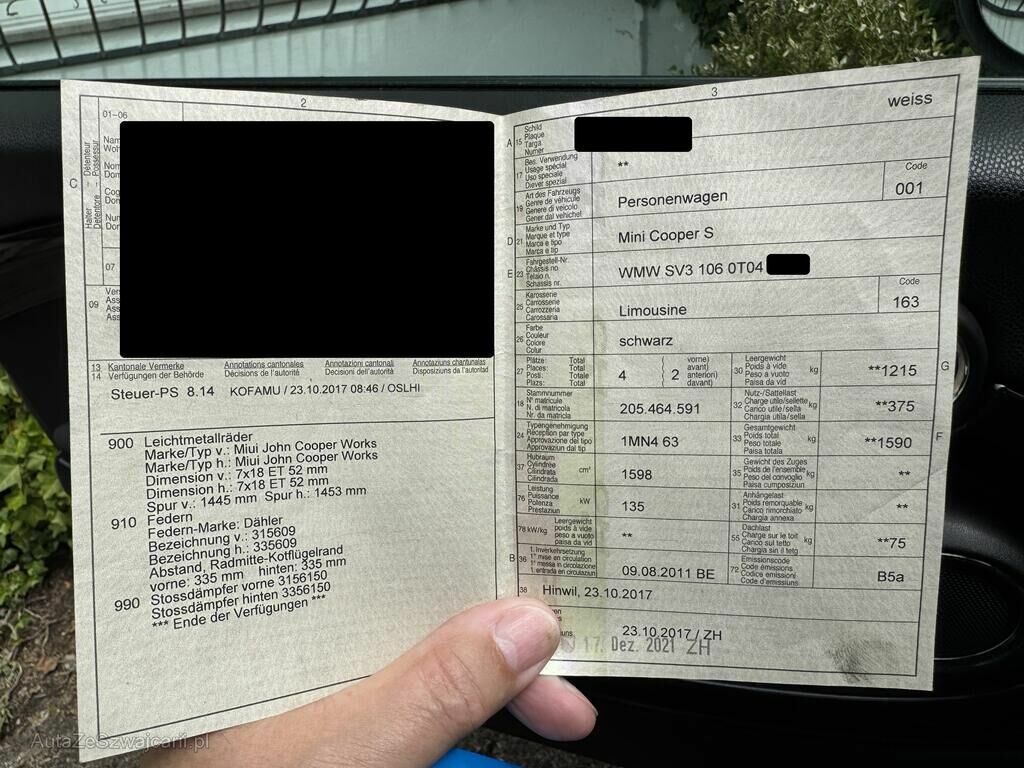 2
01-06
C
Détenteur
Possessur
Halter
Detentore
Nam
Woh
Nom
Dom
Cog
Dom
Num
Dom
07
09
Vers
Ass
Ass
Ass
13 Kantonale Vermerke Annotations cantonales Annotazioni cantonali Annotaziuns chantunalas
14 Verfügungen der Behörde Décisions de l'autorité Decisioni dell'autorità Disposiziuns da l'autoritad
Steuer-PS 8.14 KOFAMU / 23.10.2017 08:46 / OSLHI
900 Leichtmetallräder
Marke/Typ v.: Miui John Cooper Works
Marke/Typ h.: Miui John Cooper Works
Dimension v.: 7x18 ET 52 mm
Dimension h.: 7x18 ET 52 mm
Spur v.: 1445 mm Spur h.: 1453 mm
910 Federn
Federn-Marke: Dähler
Bezeichnung v.: 315609
Bezeichnung h.: 335609
Abstand, Radmitte-Kotflügelrand
vorne: 335 mm hinten: 335 mm
990 Stossdämpfer vorne 3156150
Stossdämpfer hinten 3356150
*** Ende der Verfügungen ***
3
weiss
A 15 Schild
Plaque
Targa
Numer
17 Bes. Verwendung
Usage spécial
Uso speciale
Diever spezial
**
19 Art des Fahrzeugs
Genre de véhicule
Genere di veicolo
Gener dal vehichel
Personenwagen
Code
001
D 21 Marke und Typ
Marque et type
Marca e tipo
Marca e tip
Mini Cooper S
E 23 Fahrgestell-Nr.
Châssis no
Telaio n.
Schassis nr.
WMW SV3 106 0T04
25 Karosserie
Carrosserie
Carrozzeria
Carossaria
Limousine
Code
163
26 Farbe
Couleur
Colore
Colur
schwarz
27 Plätze: Total
Places: Total
Posti: Totale
Plazs: Total
4
2
vorne)
avant)
anteriori)
davant)
30 Leergewicht
Poids à vide
Peso a vuoto
Paisa da vid
kg
**1215
G
18 Stammnummer
N° matricule
N. di matricola
Nr. da matricla
205.464.591
32 Nutz-/Sattellast
Charge utile/sellette
Carico utile/sella
Chargia utila/sella
kg
**375
24 Typengenehmigung
Réception par type
Approvazione del tipo
Approvaziun dal tip
1MN4 63
33 Gesamtgewicht
Poids total
Peso totale
Paisa totala
kg
**1590
F
37 Hubraum
Cylindrée
Cilindrata
Cilindrada
cm³
1598
35 Gewicht des Zuges
Poids de l'ensemble
Peso del convoglio
Paisa cumposiziun
kg
**
76 Leistung
Puissance
Potenza
Prestaziun
kW
135
31 Anhängelast
Poids remorquable
Carico rimorchiato
Chargia annexa
kg
**
78 kW/kg Leergewicht
poids à vide
peso a vuoto
paisa da vid
**
55 Dachlast
Charge sur le toit
Carico sul tetto
Chargia sin il tetg
kg
**75
B 36 1. Inverkehrsetzung
1re mise en circulation
1a messa in circolazione
1. entrada en circulaziun
09.08.2011 BE
72 Emissionscode
Code émissions
Codice emissioni
Code d'emissiuns
B5a
38 Hinwil, 23.10.2017
23.10.2017 / ZH
17. Dez. 2021 ZH
AutaZeSzwajcarii.pl